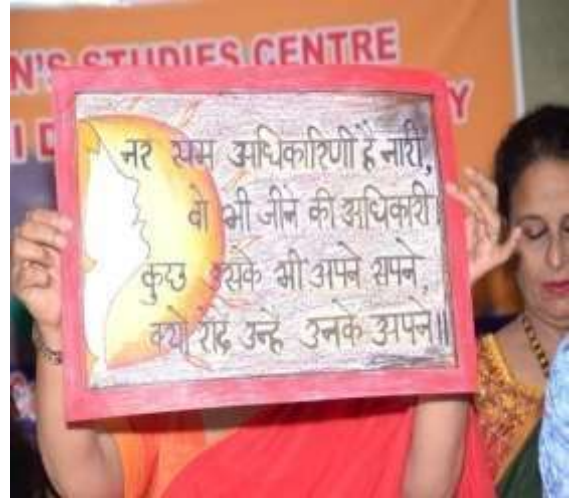 N'S STUDIES CENTRE
I D
Y
नर सम अधिकारिणी है नारी,
वो भी जीने की अधिकारी।
कुछ उसके भी अपने सपने,
क्यों रौंदे उन्हें उनके अपने॥